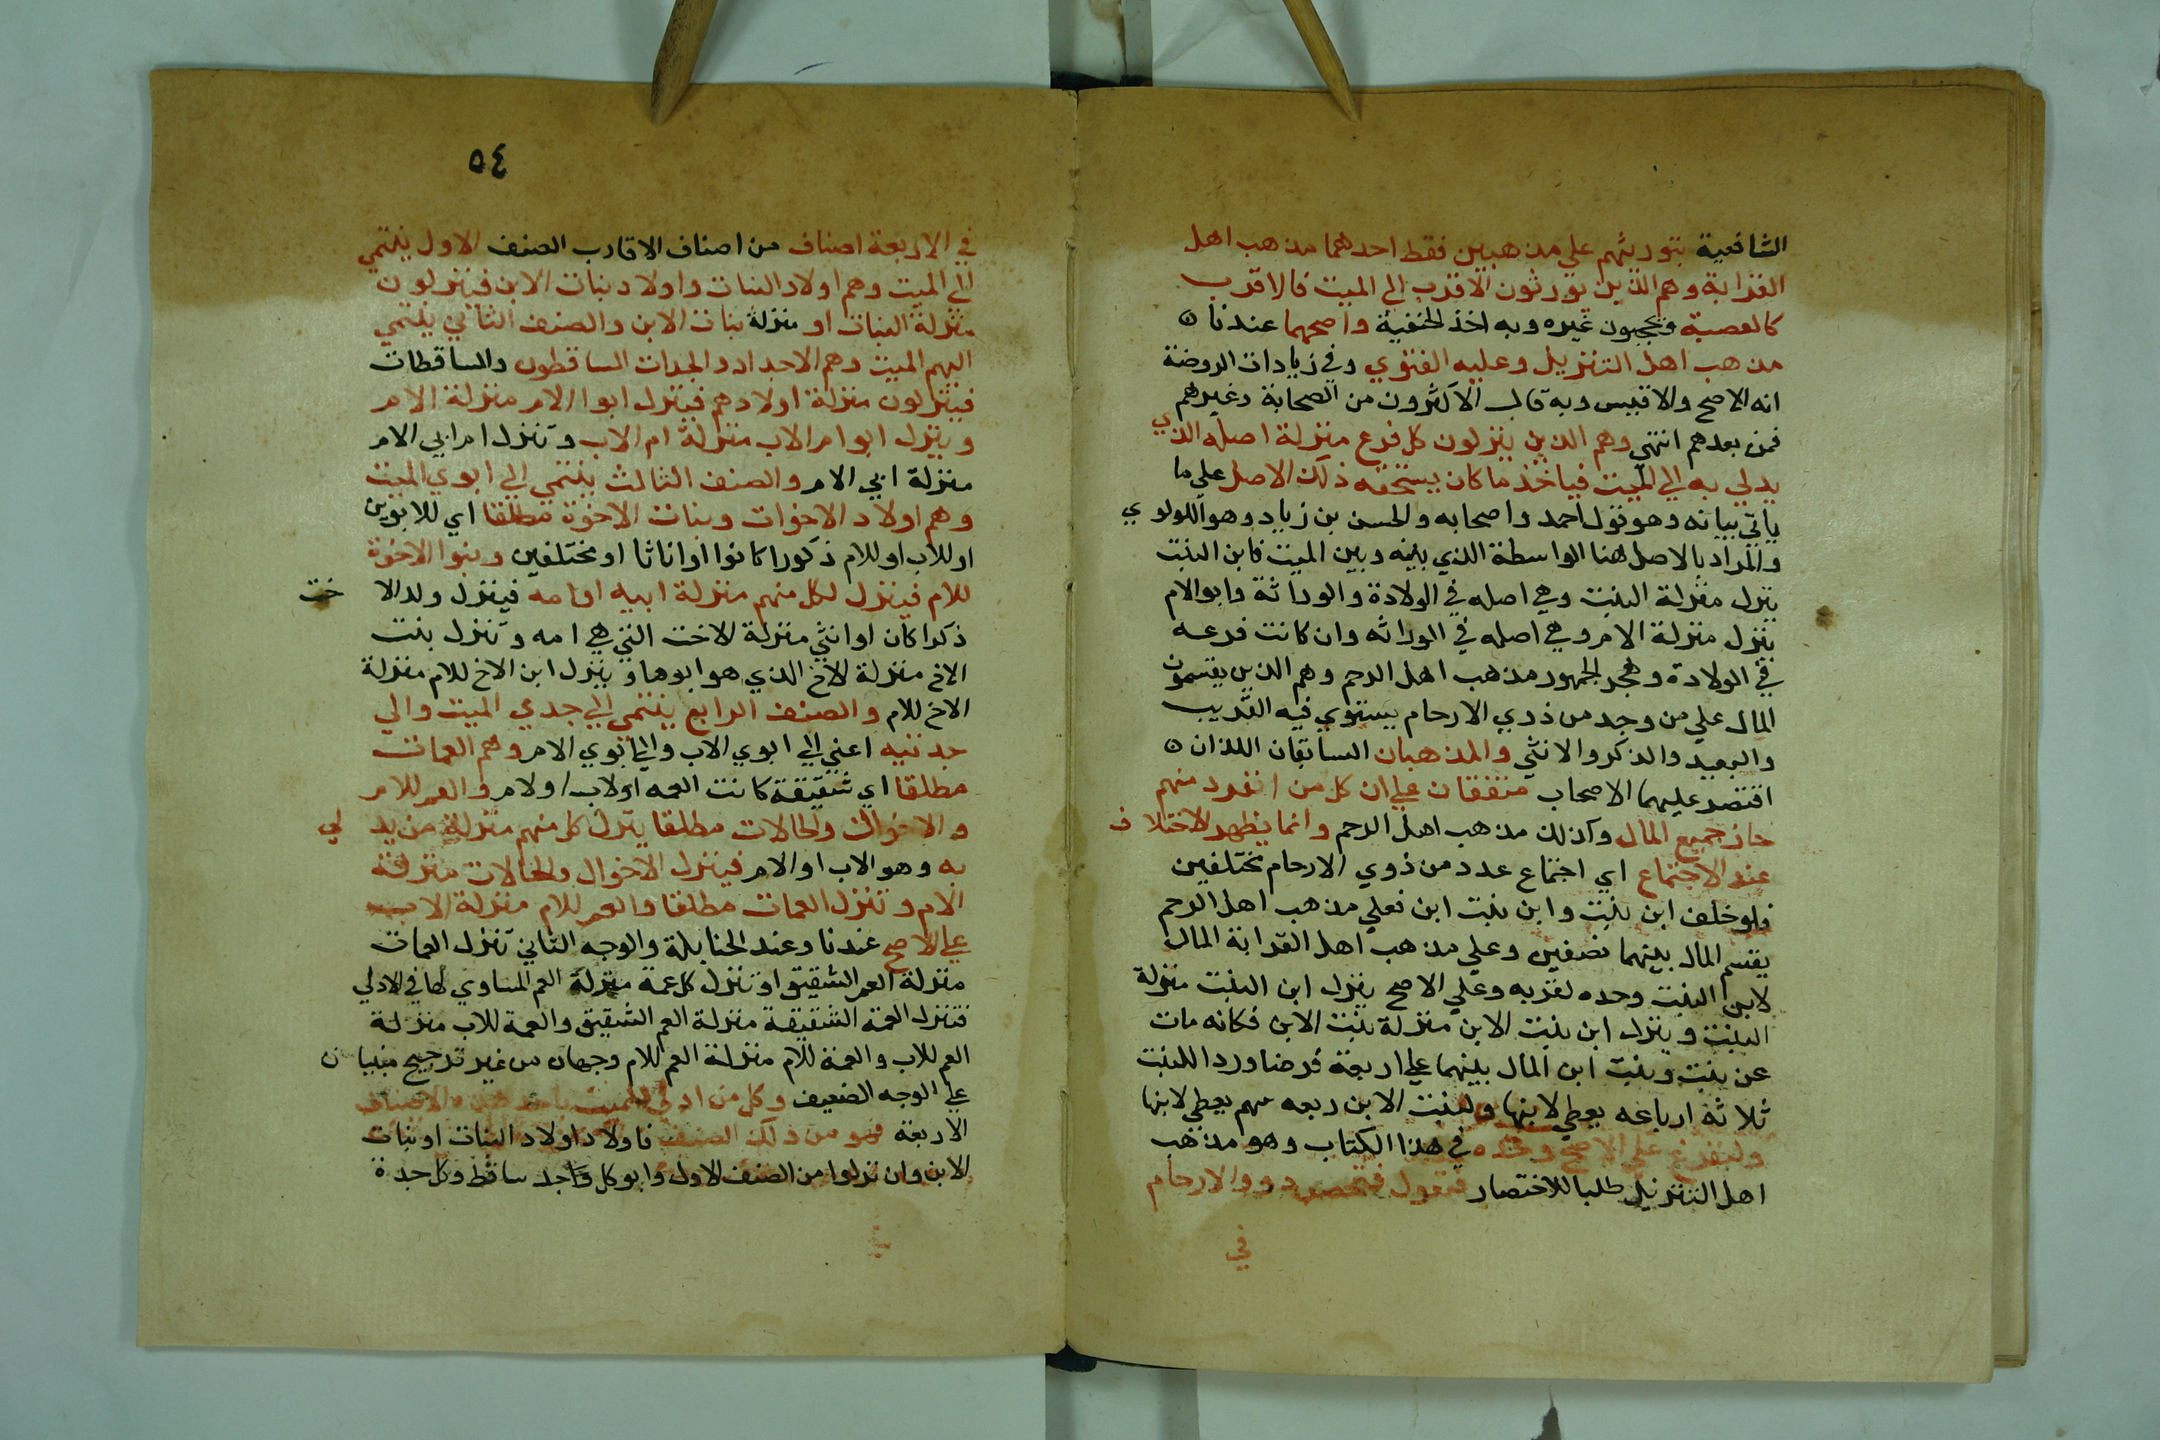 الشافعية بتوريثهم علي مذهبين فقط احدهما مذهب اهل
القرابة وهم الذين يورثون الاقرب الي الميت فالاقرب
كالعصبة ويحجبون غيره وبه اخذ الحنفية واصحهما عندنا ٥
مذهب اهل التنزيل وعليه الفتوي وفي زيادات الروضة
انه الاصح والاقيس وبه قال الاكثرون من الصحابة وغيرهم
فمن بعدهم انتهي وهم الذين ينزلون كل فرع منزلة اصله الذي
يدلي به الي الميت فياخذ ما كان يستحقه ذلك الاصل علي ما
ياتي بيانه وهو قول احمد واصحابه والحسن بن زياد وهو اللولوي
والمراد بالاصل هنا الواسطة الذي بينه وبين الميت فابن البنت
ينزل منزلة البنت وهي اصله في الولادة والوراثة وابو الام
ينزل منزلة الام وهي اصله في الوراثه وان كانت فرعه
في الولادة وهجر الجمهور مذهب اهل الرحم وهم الذين يقسمون
المال علي من وجد من ذوي الارحام يستوي فيه القريب
والبعيد والذكر والانثي والمذهبان السابقان اللذان ٥
اقتصر عليهما الاصحاب متفقان علي ان كل من انفرد منهم
حاز جميع المال وكذلك مذهب اهل الرحم وانما يظهر الاختلاف
عند الاجتماع اي اجتماع عدد من ذوي الارحام مختلفين
فلو خلف ابن بنت وابن بنت ابن فعلي مذهب اهل الرحم
يقسم المال بينهما نصفين وعلي مذهب اهل القرابة المال
لابن البنت وحده لقربه وعلي الاصح ينزل ابن البنت منزلة
البنت وينزل ابن بنت الابن منزلة بنت الابن فكانه مات
عن بنت وبنت ابن المال بينهما علي اربعة فرضا وردا للبنت
ثلاثة ارباعه يعطي لابنها ولبنت الابن ربعه سهم يعطي لابنها
ولنفرع علي الاصح وحده في هذا الكتاب وهو مذهب
اهل التنزيل طلبا للاختصار فنقول فتحصر ذوو الارحام
في
٥٤
في الاربعة اصناف من اصناف الاقارب الصنف الاول ينتمي
الي الميت وهم اولاد البنات واولاد بنات الابن فينزلون
منزلة البنات او منزلة بنات الابن والصنف الثاني ينتمي
اليهم الميت وهم الاجداد والجدات الساقطون والساقطات
فينزلون منزلة اولادهم فينزل ابوا الام منزلة الام
وينزل ابو ام الاب منزلة ام الاب وتنزل ام ابي الام
منزلة ابي الام والصنف الثالث ينتمي الي ابوي الميت
وهم اولاد الاخوات وبنات الاخوة مطلقا اي للابوين
او للاب او للام ذكورا كانوا او اناثا او مختلفين وبنوا الاخوة
للام فينزل لكل منهم منزلة ابيه او امه فينزل ولد الاخت
ذكرا كان او انثي منزلة الاخت التي هي امه وتنزل بنت
الاخ منزلة الاخ الذي هو ابوها وينزل ابن الاخ للام منزلة
الاخ للام والصنف الرابع ينتمي الي جدي الميت والي
جدتيه اعني الي ابوي الاب والي ابوي الام وهم العمات
مطلقا اي شقيقة كانت العمه او لاب او لام والعم للام
والاخوال والخالات مطلقا ينزل كل منهم منزلة من يدلي
به وهو الاب او الام فينزل الاخوال والخالات منزلة
الام وتنزل العمات مطلقا والعم للام منزلة الاب
علي الاصح عندنا وعند الحنابلة والوجه الثاني تنزل العمات
منزلة العم الشقيق او تنزل كل عمة منزلة العم المساوي لها في الادلي
فتنزل العمة الشقيقة منزلة العم الشقيق والعمة للاب منزلة
العم للاب والعمة للام منزلة العم للام وجهان من غير ترجيح مبنيان
علي الوجه الضعيف وكل من ادلي للميت باحد هذه الاصناف
الاربعة فهو من ذلك الصنف فاولاد اولاد البنات او بنات
الابن وان نزلوا من الصنف الاول وابو كل واحد ساقط وكل جدة